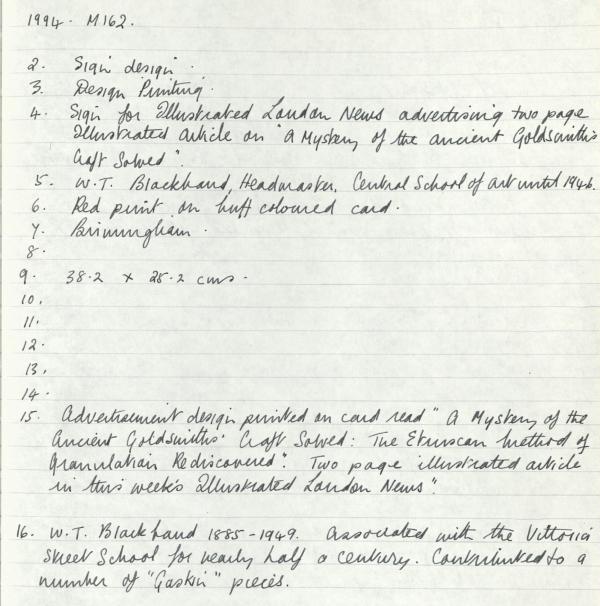 1994. M162.
2. Sign design.
3. Design Printing.
4. Sign for Illustrated London News advertising two page
Illustrated article on "A Mystery of the ancient Goldsmith's
Craft Solved".
5. W.T. Blackband, Headmaster, Central School of Art until 1946.
6. Red print on buff coloured card.
7. Birmingham.
8.
9. 38.2 x 25.2 cms.
10.
11.
12.
13.
14.
15. Advertisement design printed on card read "A Mystery of the
Ancient Goldsmiths' Craft Solved: The Etruscan method of
Granulation Rediscovered". Two page illustrated article
in this week's Illustrated London News".
16. W.T. Blackband 1885-1949. Associated with the Vittoria
Street School for nearly half a century. Contributed to a
number of "Gaskin" pieces.